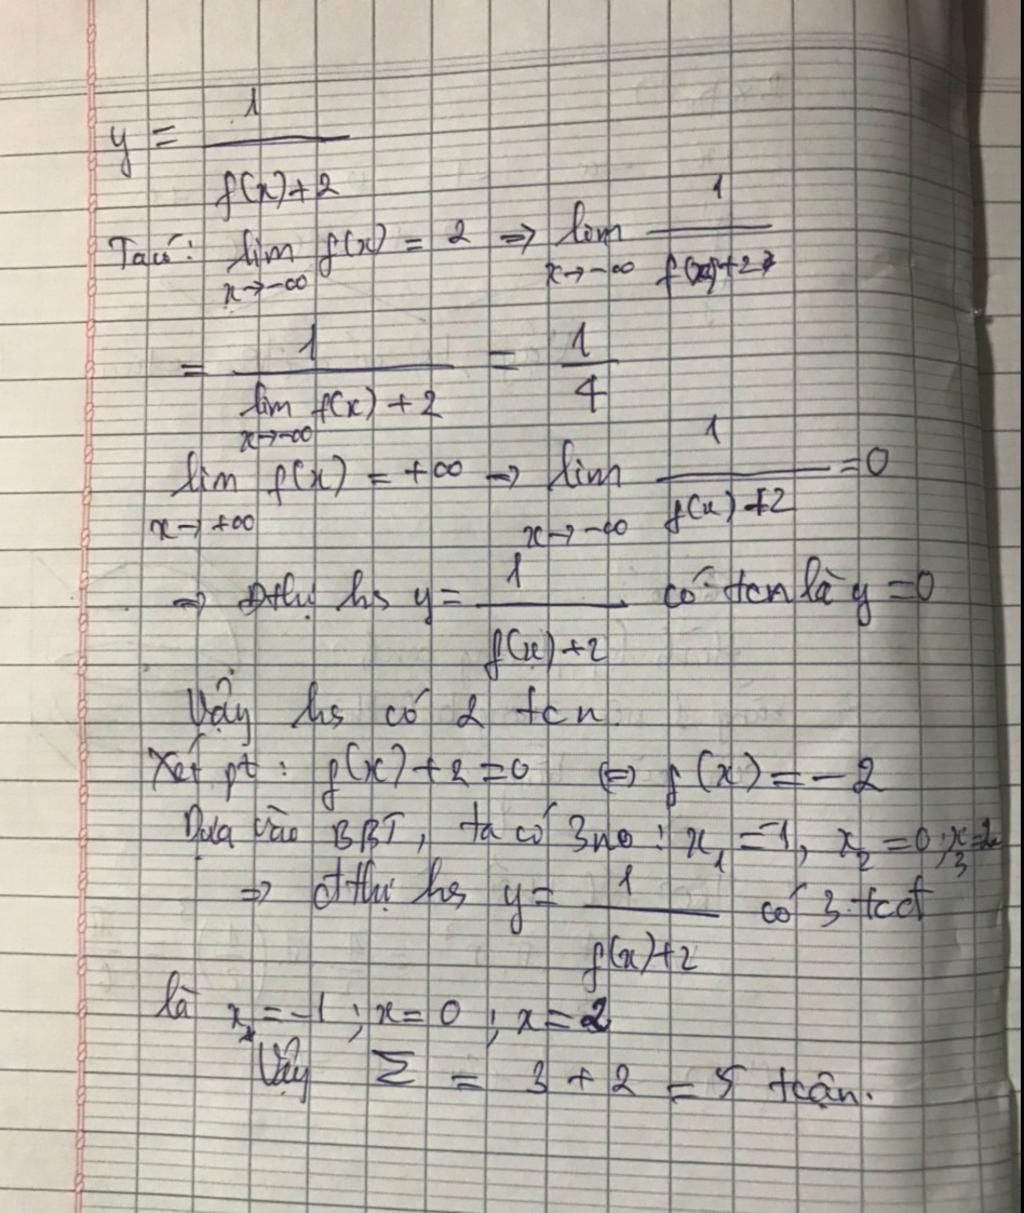 y = 1 / (f(x)+2)
Ta có: lim x→-∞ f(x) = 2 => lim x→-∞ 1 / (f(x)+2)
= 1 / (lim x→-∞ f(x) + 2) = 1/4
lim x→+∞ f(x) = +∞ → lim x→-∞ 1 / (f(x)+2) = 0
=> Đthị hs y = 1 / (f(x)+2) có tcn là y = 0
Vậy hs có 2 tcn.
Xét pt: f(x)+2=0 <=> f(x) = -2
Dựa vào BBT, ta có 3 no: x₁ = -1, x₂ = 0; x₃=2
=> đthị hs y = 1 / (f(x)+2) có 3 tcđ
là x = -1; x = 0; x = 2
Vậy Σ = 3 + 2 = 5 tcận.